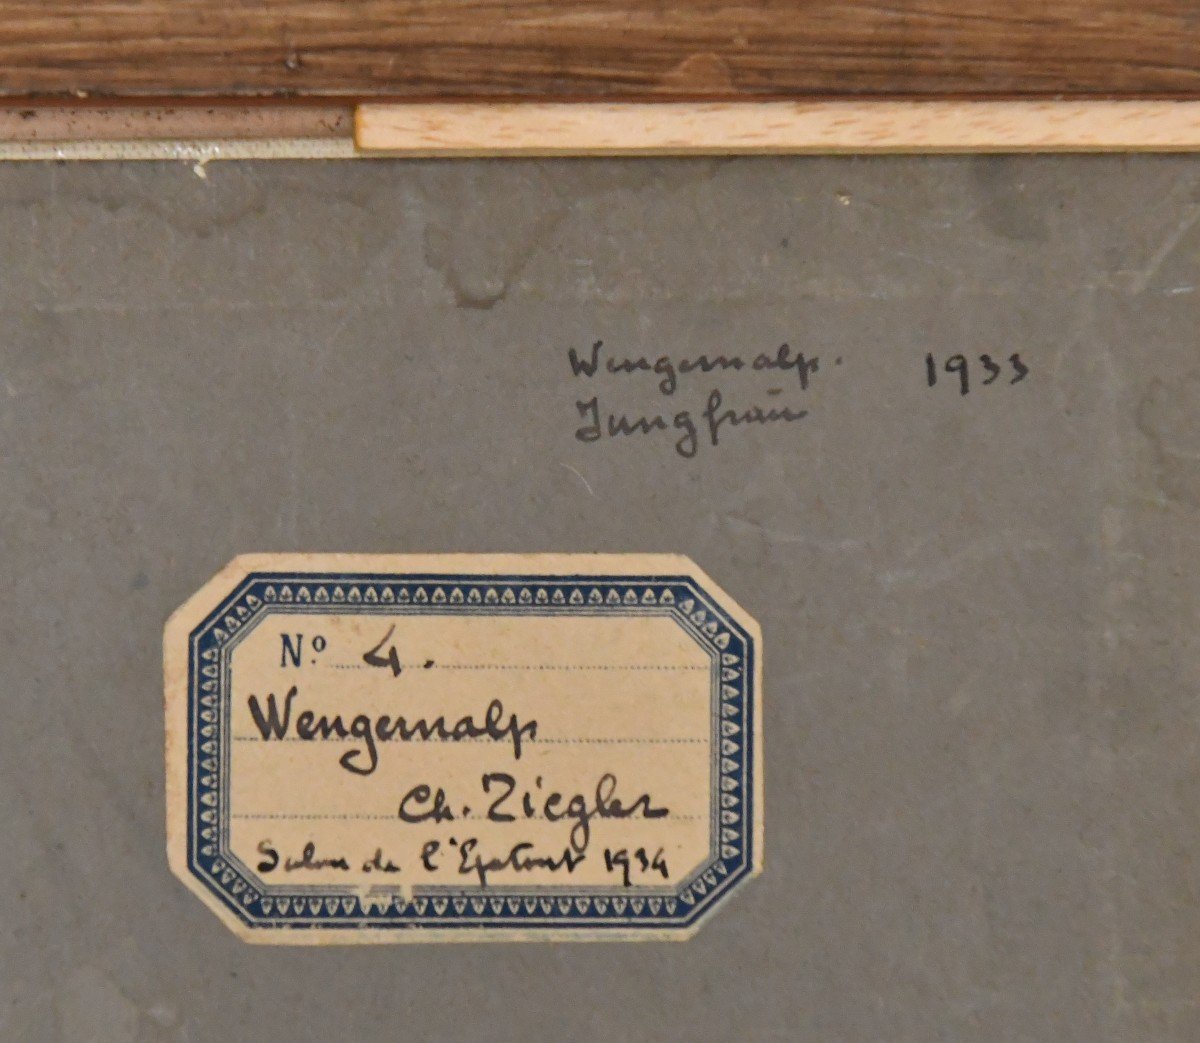 Wengernalp. 1933
Jungfrau
Nº 4.
Wengernalp
Ch. Ziegler
Salon de l'Epatant 1934